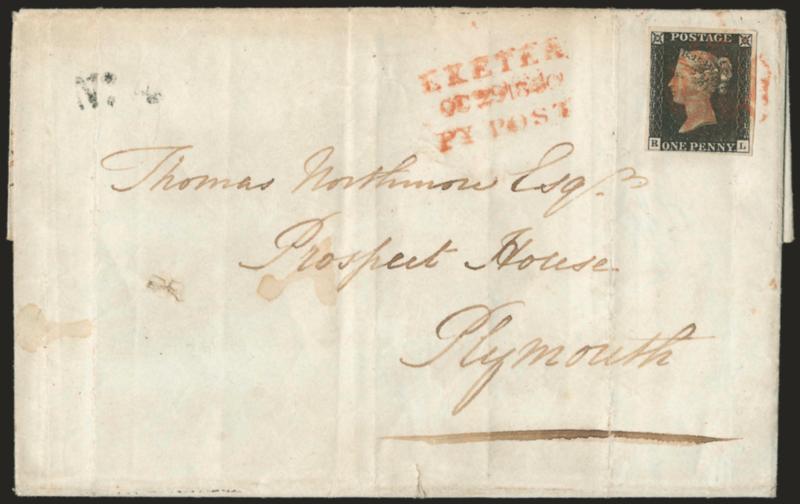 POSTAGE
R L
ONE PENNY
EXETER
OC 29 1840
PY POST
No: 4
Thomas Northmore Esqre
Prospect House
Plymouth